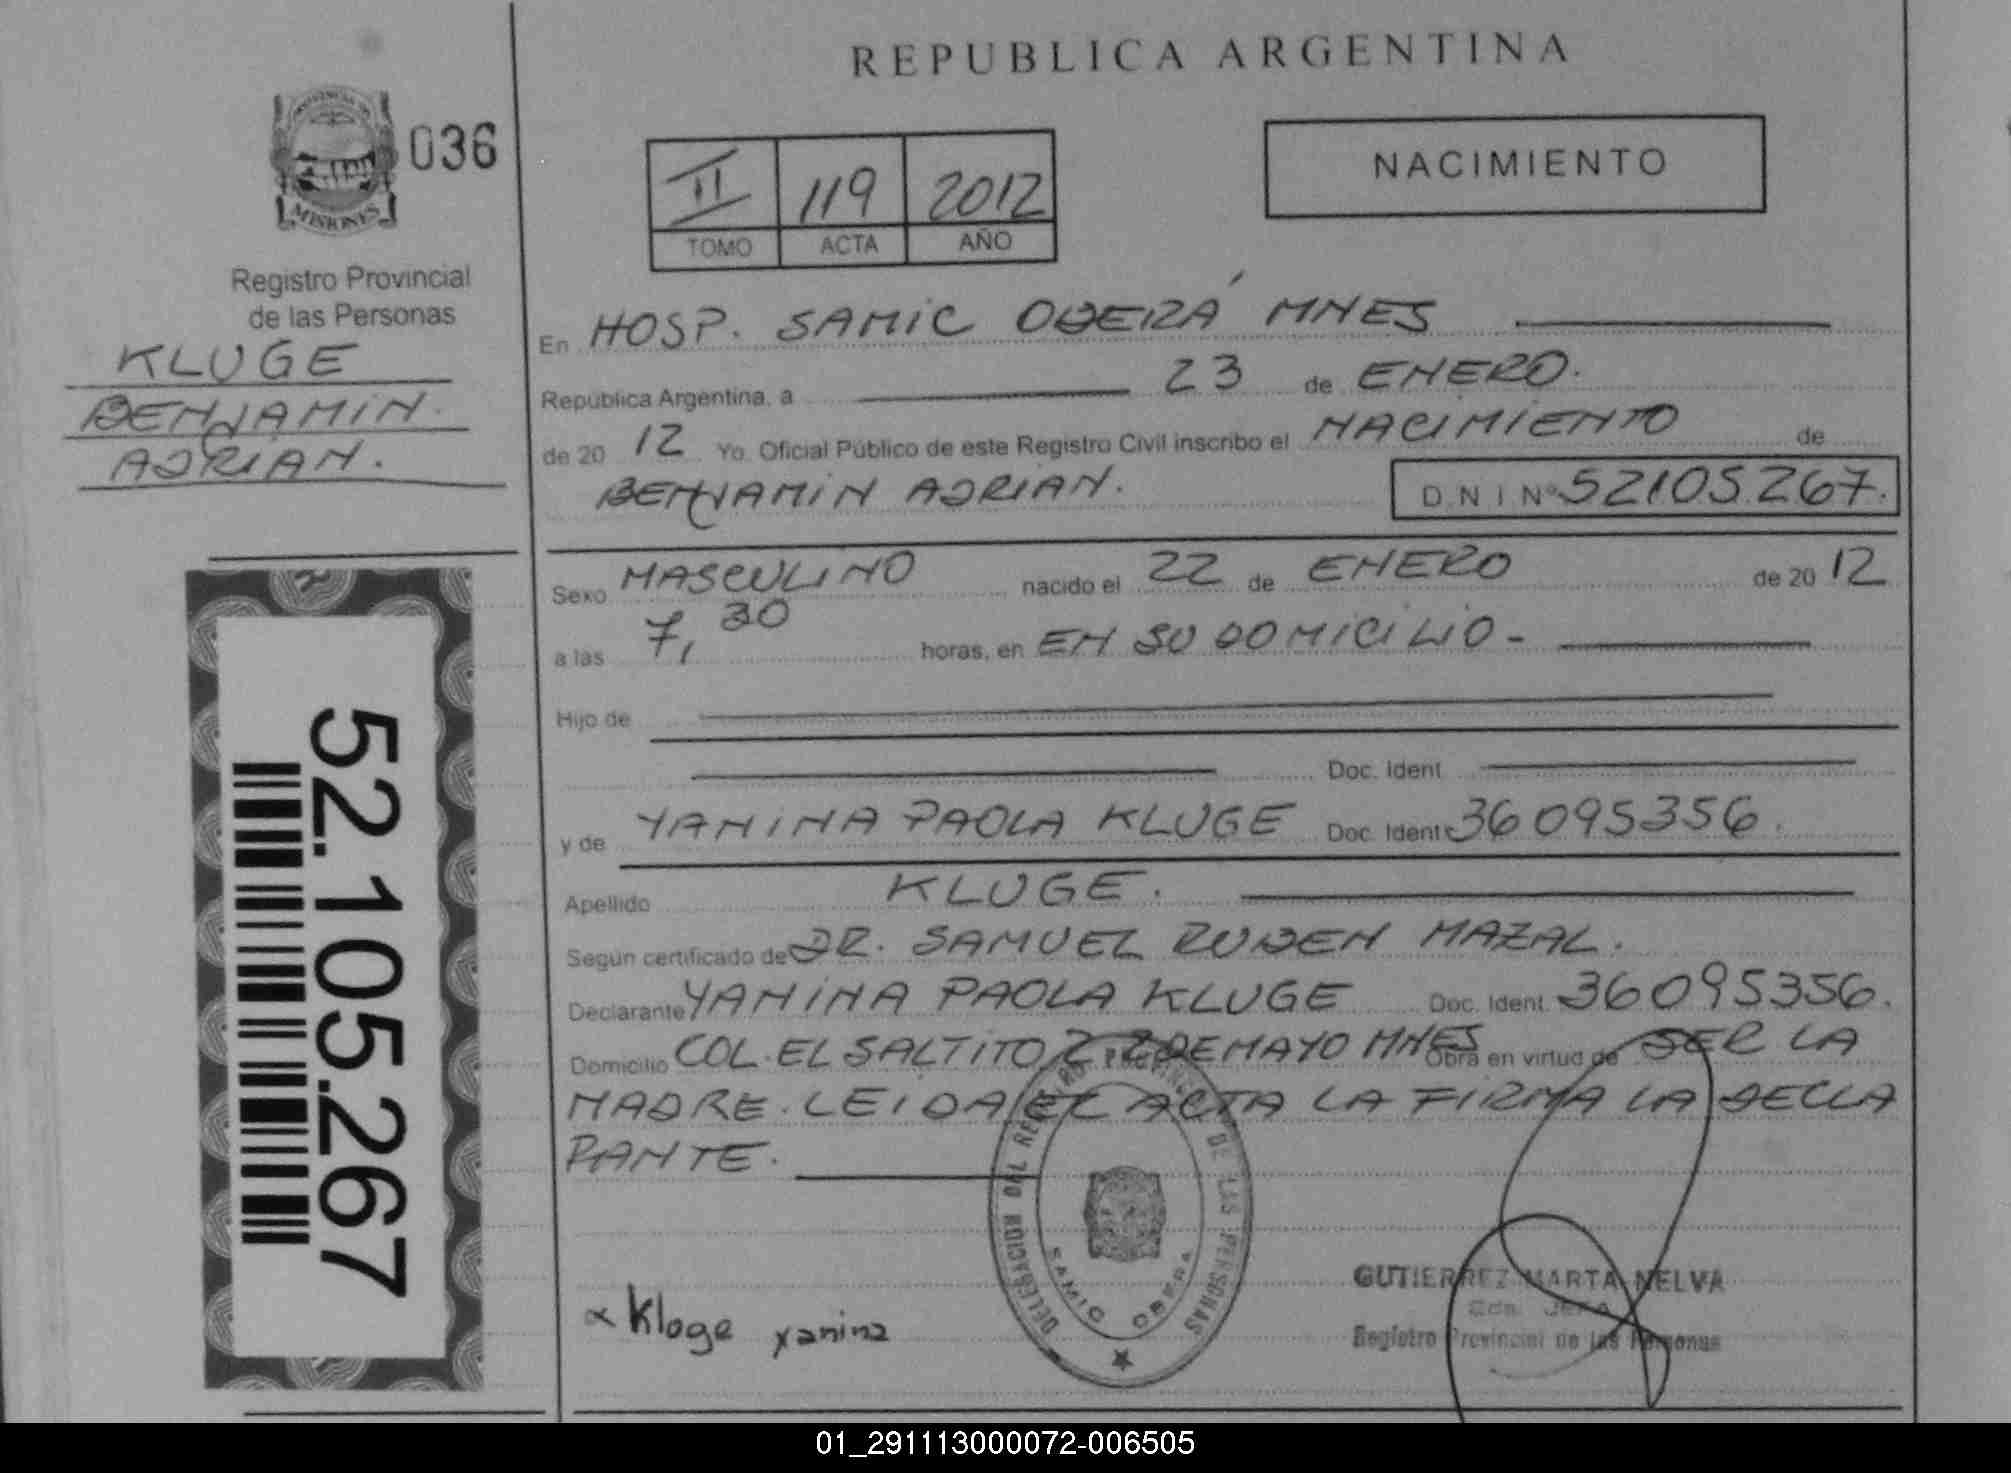 REPUBLICA ARGENTINA
PROVINCIA DE
MISIONES
036
Registro Provincial
de las Personas
KLUGE
BENJAMIN
ADRIAN.
52.105.267
II 119 2012
TOMO ACTA AÑO
NACIMIENTO
En HOSP. SAMIC OBERÁ MNES
República Argentina, a 23 de ENERO.
de 20 12 Yo. Oficial Público de este Registro Civil inscribo el NACIMIENTO de
BENJAMIN ADRIAN. D.N.I Nº 52105267.
Sexo MASCULINO nacido el 22 de ENERO de 20 12
a las 7,30 horas, en EN SU DOMICILIO -
Hijo de
Doc. Ident
y de YANINA PAOLA KLUGE Doc. Ident 36095356.
Apellido KLUGE.
Según certificado de DR. SAMUEL RUBEN MAZAL.
Declarante YANINA PAOLA KLUGE Doc. Ident. 36095356.
Domicilio COL. EL SALTITO 2 2 DE MAYO MNES Obra en virtud de SER LA
MADRE. LEIDA EL ACTA LA FIRMA LA DECLA
RANTE.
DELEGACION DEL REGISTRO PROVINCIAL DE LAS PERSONAS
SAMIC OBERA
Kloge yanina
GUTIERREZ MARTA NELVA
Registro Provincial de las Personas
01_291113000072-006505